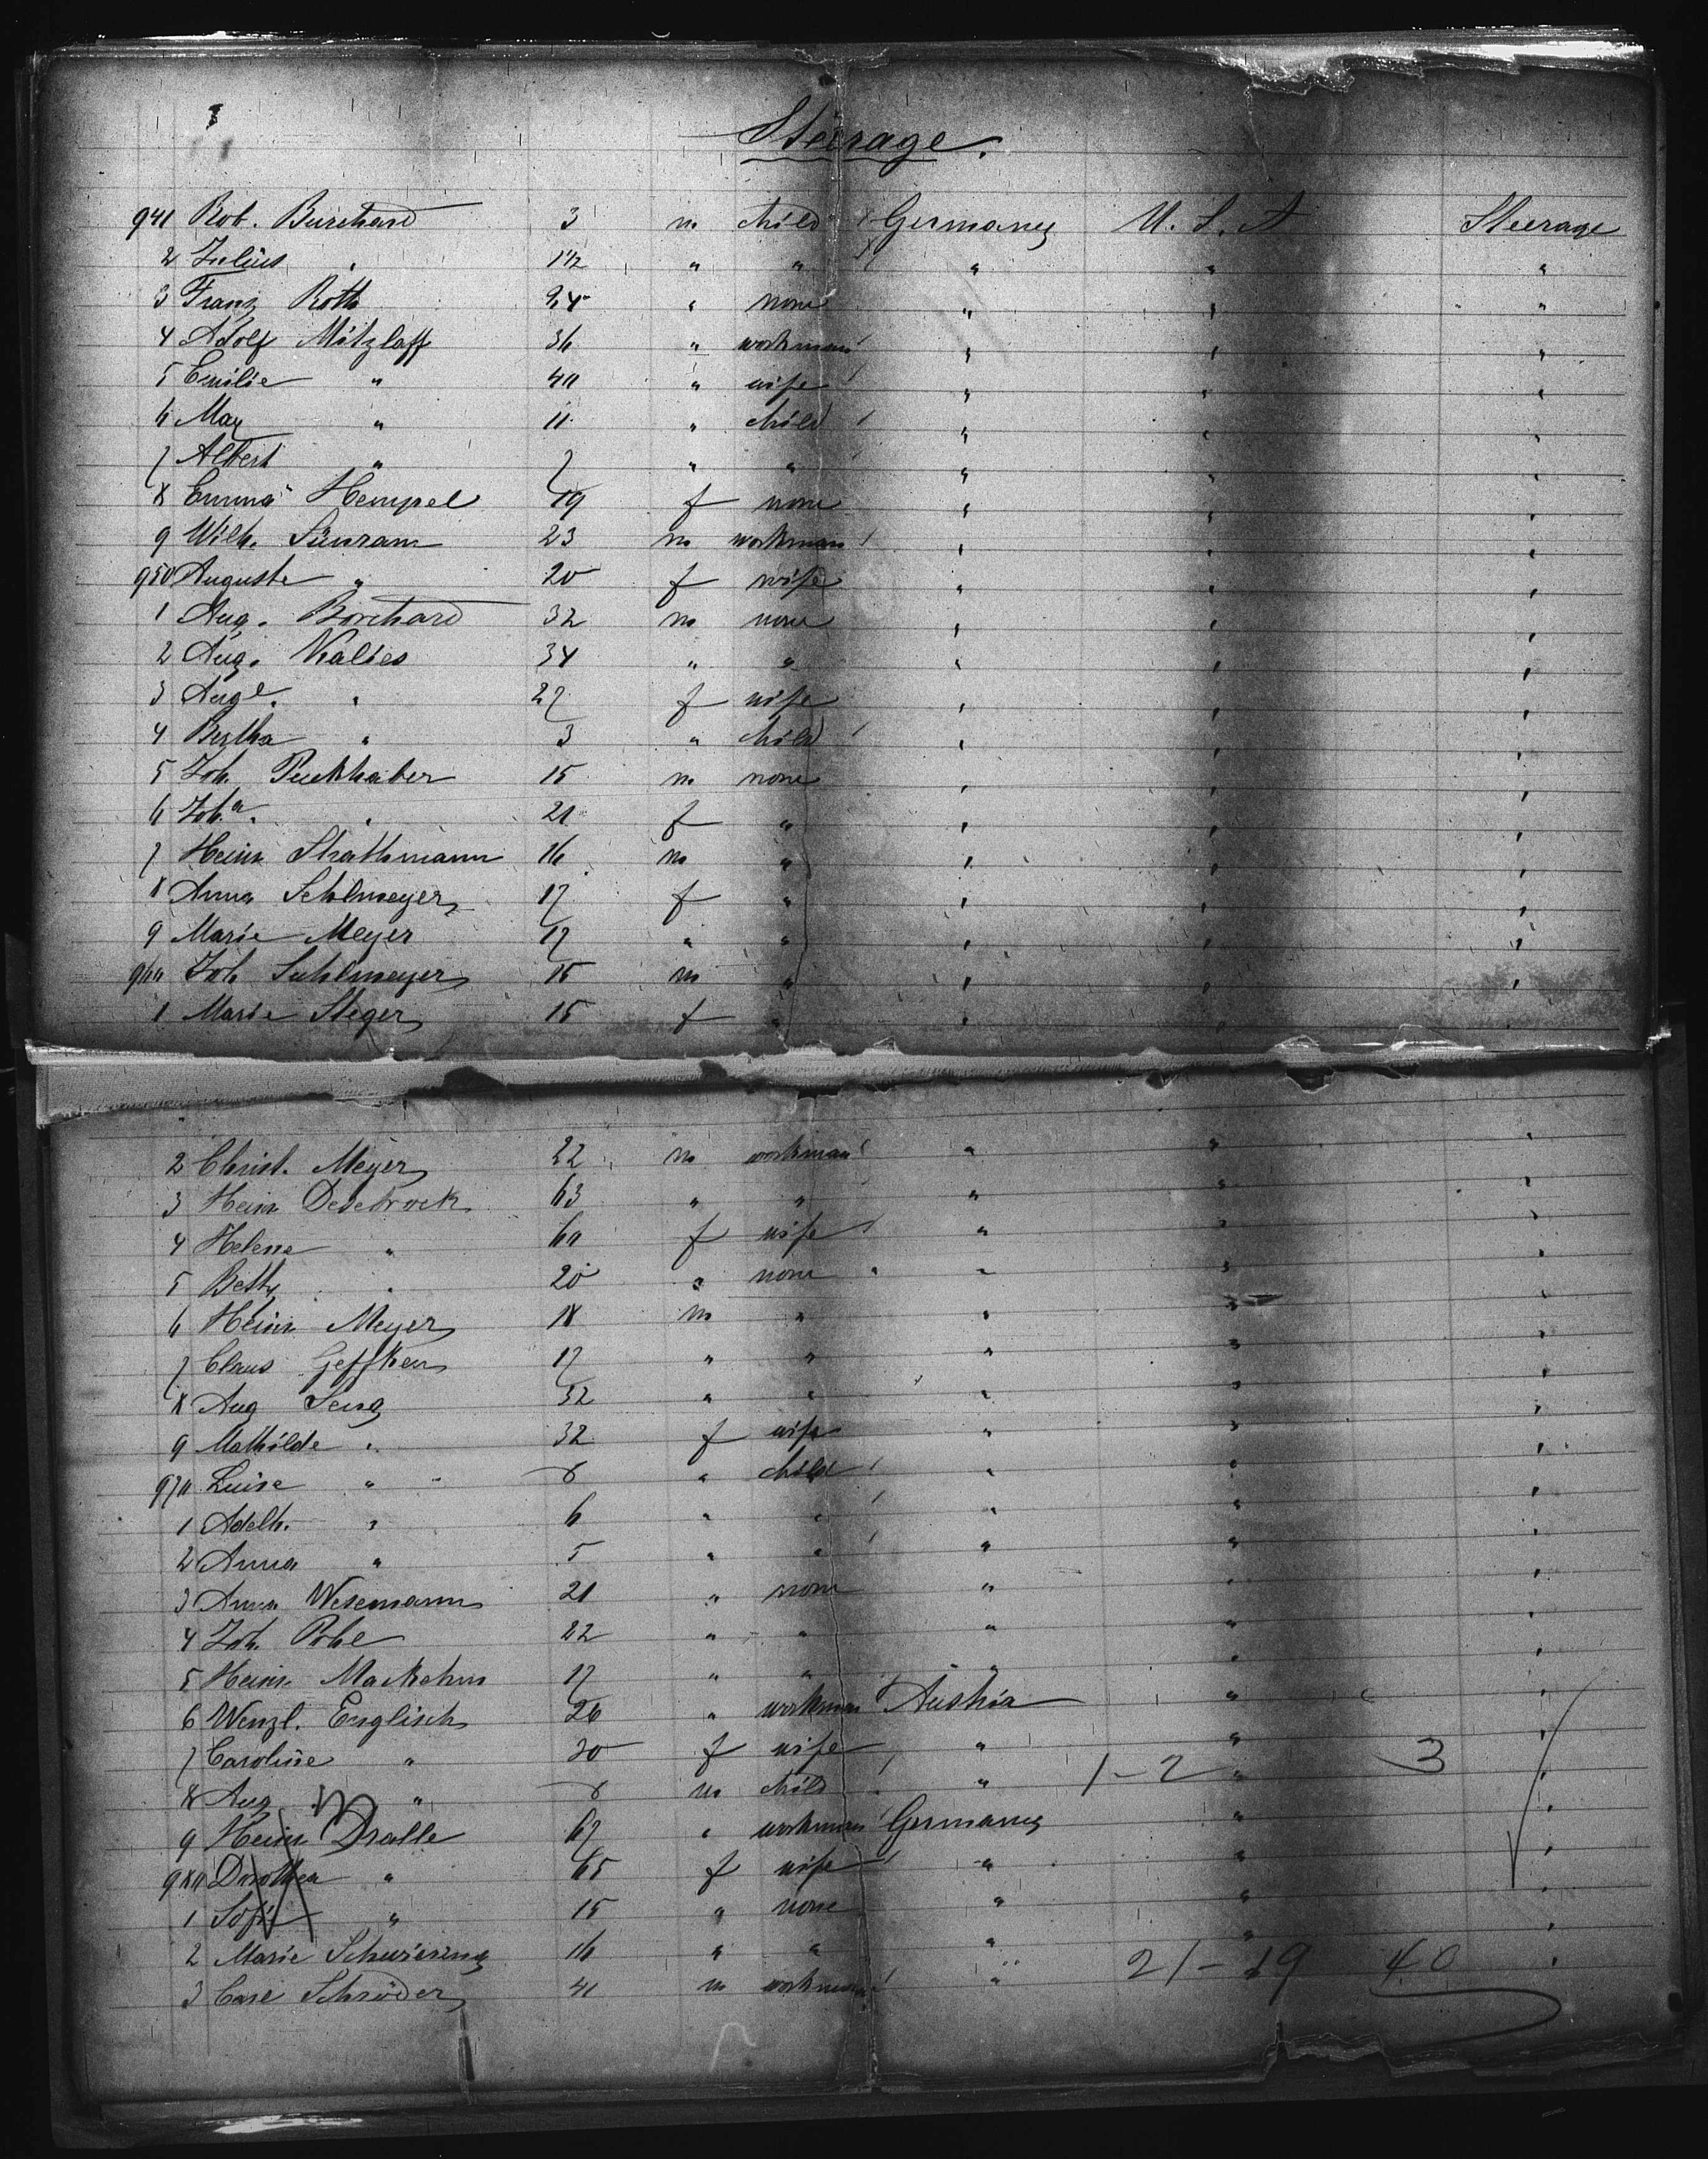 Steerage.
941 Rob. Burchard 3 m child Germany U. S. A Steerage
2 Julius " 1 1/2 " " " " "
3 Franz Roth 24 " none " " "
4 Adolf Mitzlaff 36 " workman " " "
5 Emilie " 40 " wife " " "
6 Max " 11 " child " " "
7 Albert " 7 " " " " "
8 Emma Hempel 19 f none " " "
9 Wilh. Sünram 23 m workman " " "
950 Auguste " 20 f wife " " "
1 Aug. Borchard 32 m none " " "
2 Aug. Kalies 34 " " " " "
3 Auge. " 27 f wife " " "
4 Bertha " 3 " child " " "
5 Joh. Puckhaber 15 m none " " "
6 Joha. " 21 f " " " "
7 Heinr Strathmann 16 m " " " "
8 Anna Sehlmeyer 17 f " " " "
9 Marie Meyer 17 " " " " "
960 Joh Suhlmeyer 15 m " " " "
1 Marie Steger 15 f " " " "
2 Christ. Meyer 22 m workman " " "
3 Heinr Dedebrock 63 " " " " "
4 Helene " 60 f wife " " "
5 Betty " 20 " none " " "
6 Heinr Meyer 18 m " " " "
7 Claus Geffken 17 " " " " "
8 Aug Seng 32 " " " " "
9 Mathilde " 32 f wife " " "
970 Luise " 8 " child " " "
1 Adelh. " 6 " " " " "
2 Anna " 5 " " " " "
3 Anna Wesemann 21 " none " " "
4 Joh. Pohl 22 " " " " "
5 Heinr. 17 " " " " "
6 Wenzl. Englisch 26 " workman Austria " "
7 Caroline " 30 f wife " " 3 "
8 Aug " 8 m child " 1-2 " "
9 Heinr Dralle 67 " workman Germany " "
980 Dorothea " 65 f wife " " "
1 Sofie " 15 " none " " "
2 Marie Schwiering 16 " " " " "
3 Carl Schröder 41 m workman " 21-19 40 "